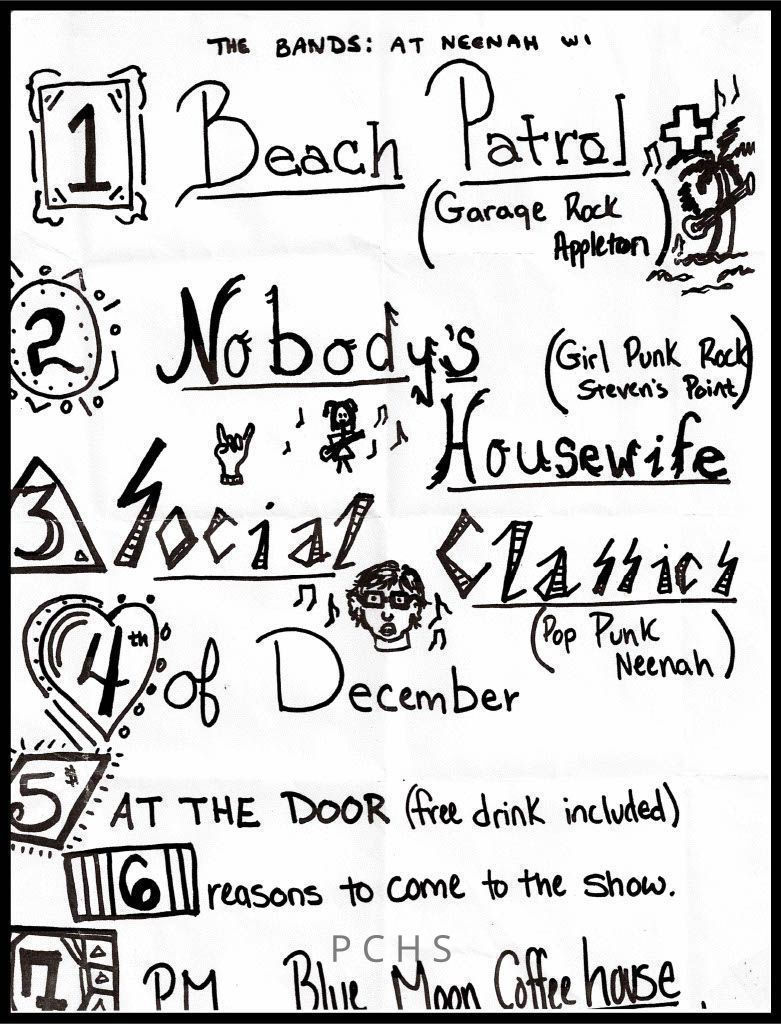 THE BANDS: AT NEENAH WI
1 Beach Patrol
(Garage Rock
Appleton)
2 Nobody's
(Girl Punk Rock
Steven's Point)
Housewife
3 Social Classics
(Pop Punk
Neenah)
4th of December
5$ AT THE DOOR (free drink included)
6 reasons to come to the show.
7 PM Blue Moon Coffee house.
PCHS